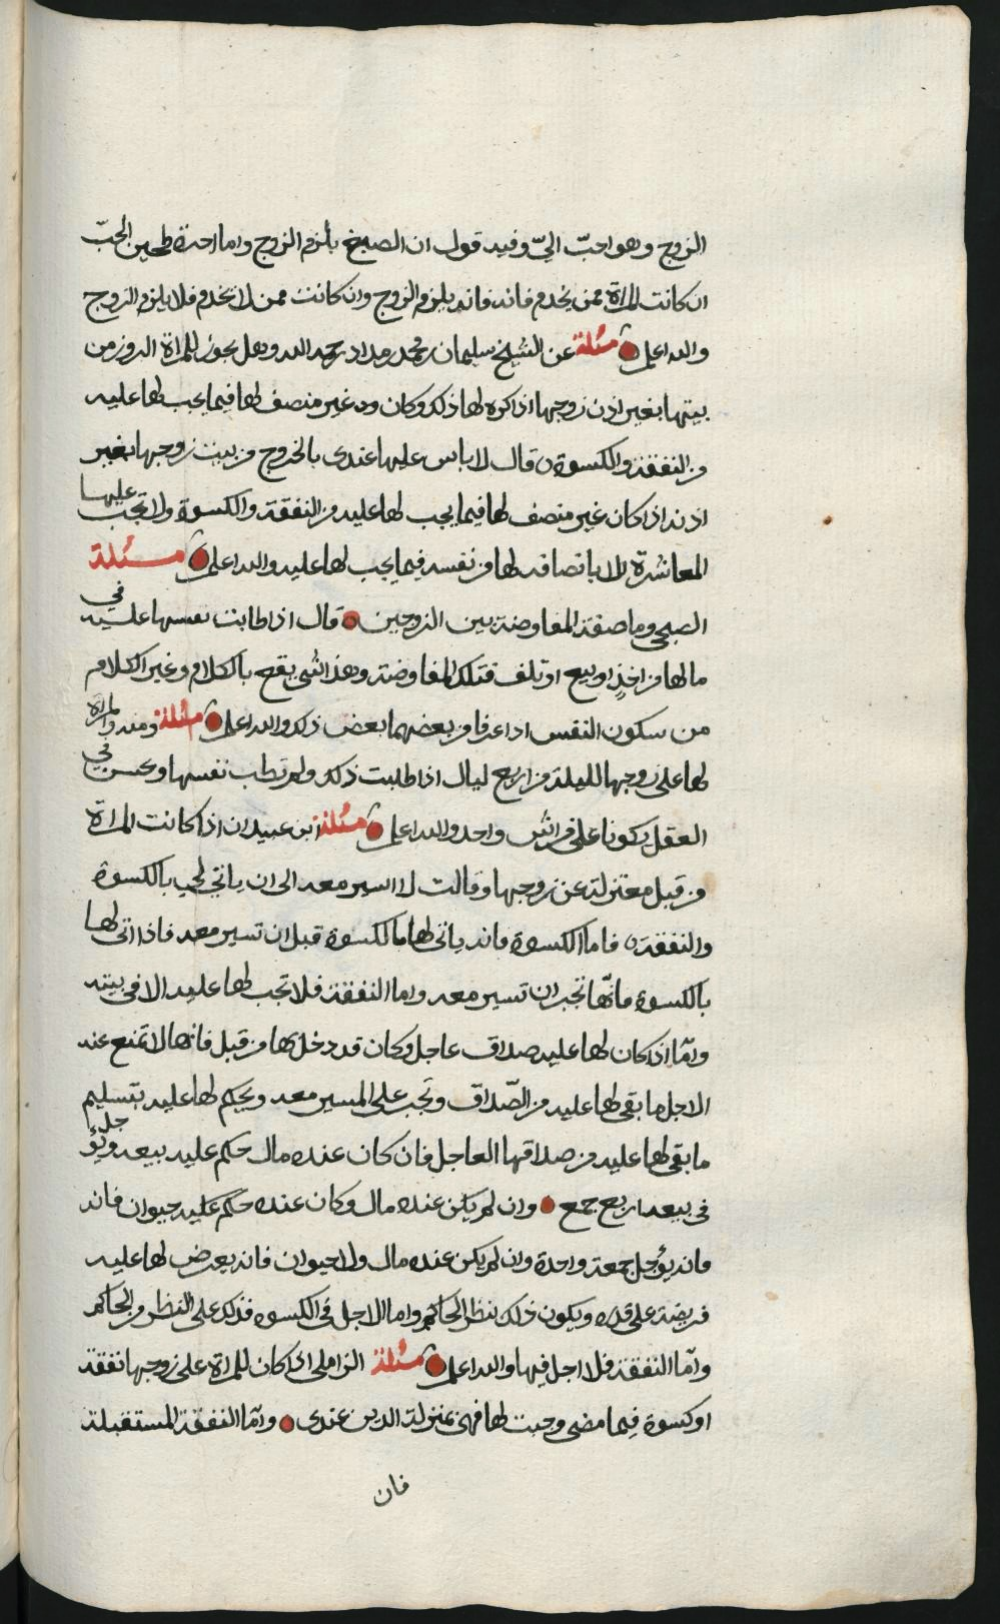 الزوج وهو احبّ اليّ وفيه قول ان الصبغ يلزم الزوج واما اجرة طحين الحبّ
ان كانت المراة ممن يخدم فانه فانه يلزم الزوج وان كانت ممن لا يخدم فلا يلزم الزوج
والله اعلم مسئلة عن الشيخ سليمان بن محمد بن مداد رحمه الله وهل يجوز للمراة البروز من
بيتها بغير اذن زوجها اذا كره لها ذلك وكان غير منصف لها فيما يجب لها عليه
من النفقة والكسوة قال لا باس عليها عندى بالخروج من بيت زوجها بغير
اذنه اذا كان غير منصف لها فيما يجب لها عليه من النفقة والكسوة ولا تجب عليها
المعاشرة الا بانصافه لها من نفسه فيما يجب لها عليه والله اعلم مسئلة
الصبحي وما صفة المفاوضة بين الزوجين قال اذا طابت نفسها عليه في
مالها من اخذٍ او بيع او تلف فتلك المفاوضة وهذا شي يقع بالكلام وغير الكلام
من سكون النفس اذا عرفا من بعضهما بعض ذلك والله اعلم مسئلة ومنه والمراة
لها على زوجها لليلة من اربع ليال اذا طلبت ذلك ولم تطب نفسها ويحسن في
العقل يكونا على فراش واحد والله اعلم مسئلة ابن عبيدان اذا كانت المراة
من قبل معتزلة عن زوجها وقالت لا اسير معه الى ان ياتي لي بالكسوة
والنفقة فاما الكسوة فانه ياتي لها بالكسوة قبل ان تسير معه فاذا اتى لها
بالكسوة فانّها تجبر ان تسير معه واما النفقة فلا تجب لها عليه الا في بيته
وامّا اذا كان لها عليه صداق عاجل وكان قد دخل بها من قبل فانها لا تمنع عنه
لاجل ما بقي لها عليه من الصّداق وتجب على المسير معه ويحكم لها عليه بتسليم
ما بقي لها عليه من صداقها العاجل فان كان عنده مال حكم عليه ببيعه ويؤجل
في بيعه اربع جمع وان لم يكن عنده مال وكان عنده حكم عليه حيوان فانه
فانه يؤجل جمعة واحدة وان لم يكن عنده مال ولا حيوان فانه يعرض لها عليه
فريضة على قدره ويكون ذلك بنظر الحاكم واما الاجل في الكسوه فذلك على النظر من الحاكم
وامّا النفقة فلا اجل فيها والله اعلم مسئلة الزاملي اذا كان للمراة على زوجها نفقة
او كسوة فيما مضى وجبت لها فهي بمنزلة الدين عندى وامّا النفقة المستقبلة
فان